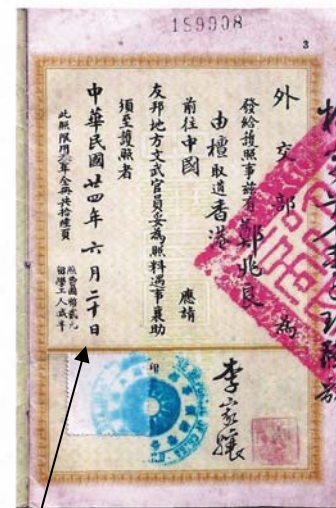 159908
3
外交部 為
發給護照事茲有鄭兆良
由檀取道香港
前往中國 應請
友邦地方文武官員妥為照料遇事襄助
須至護照者
中華民國廿四年六月二十日
此照限用六年全冊共拾陸頁
照費國幣貳元
留學工人減半
印